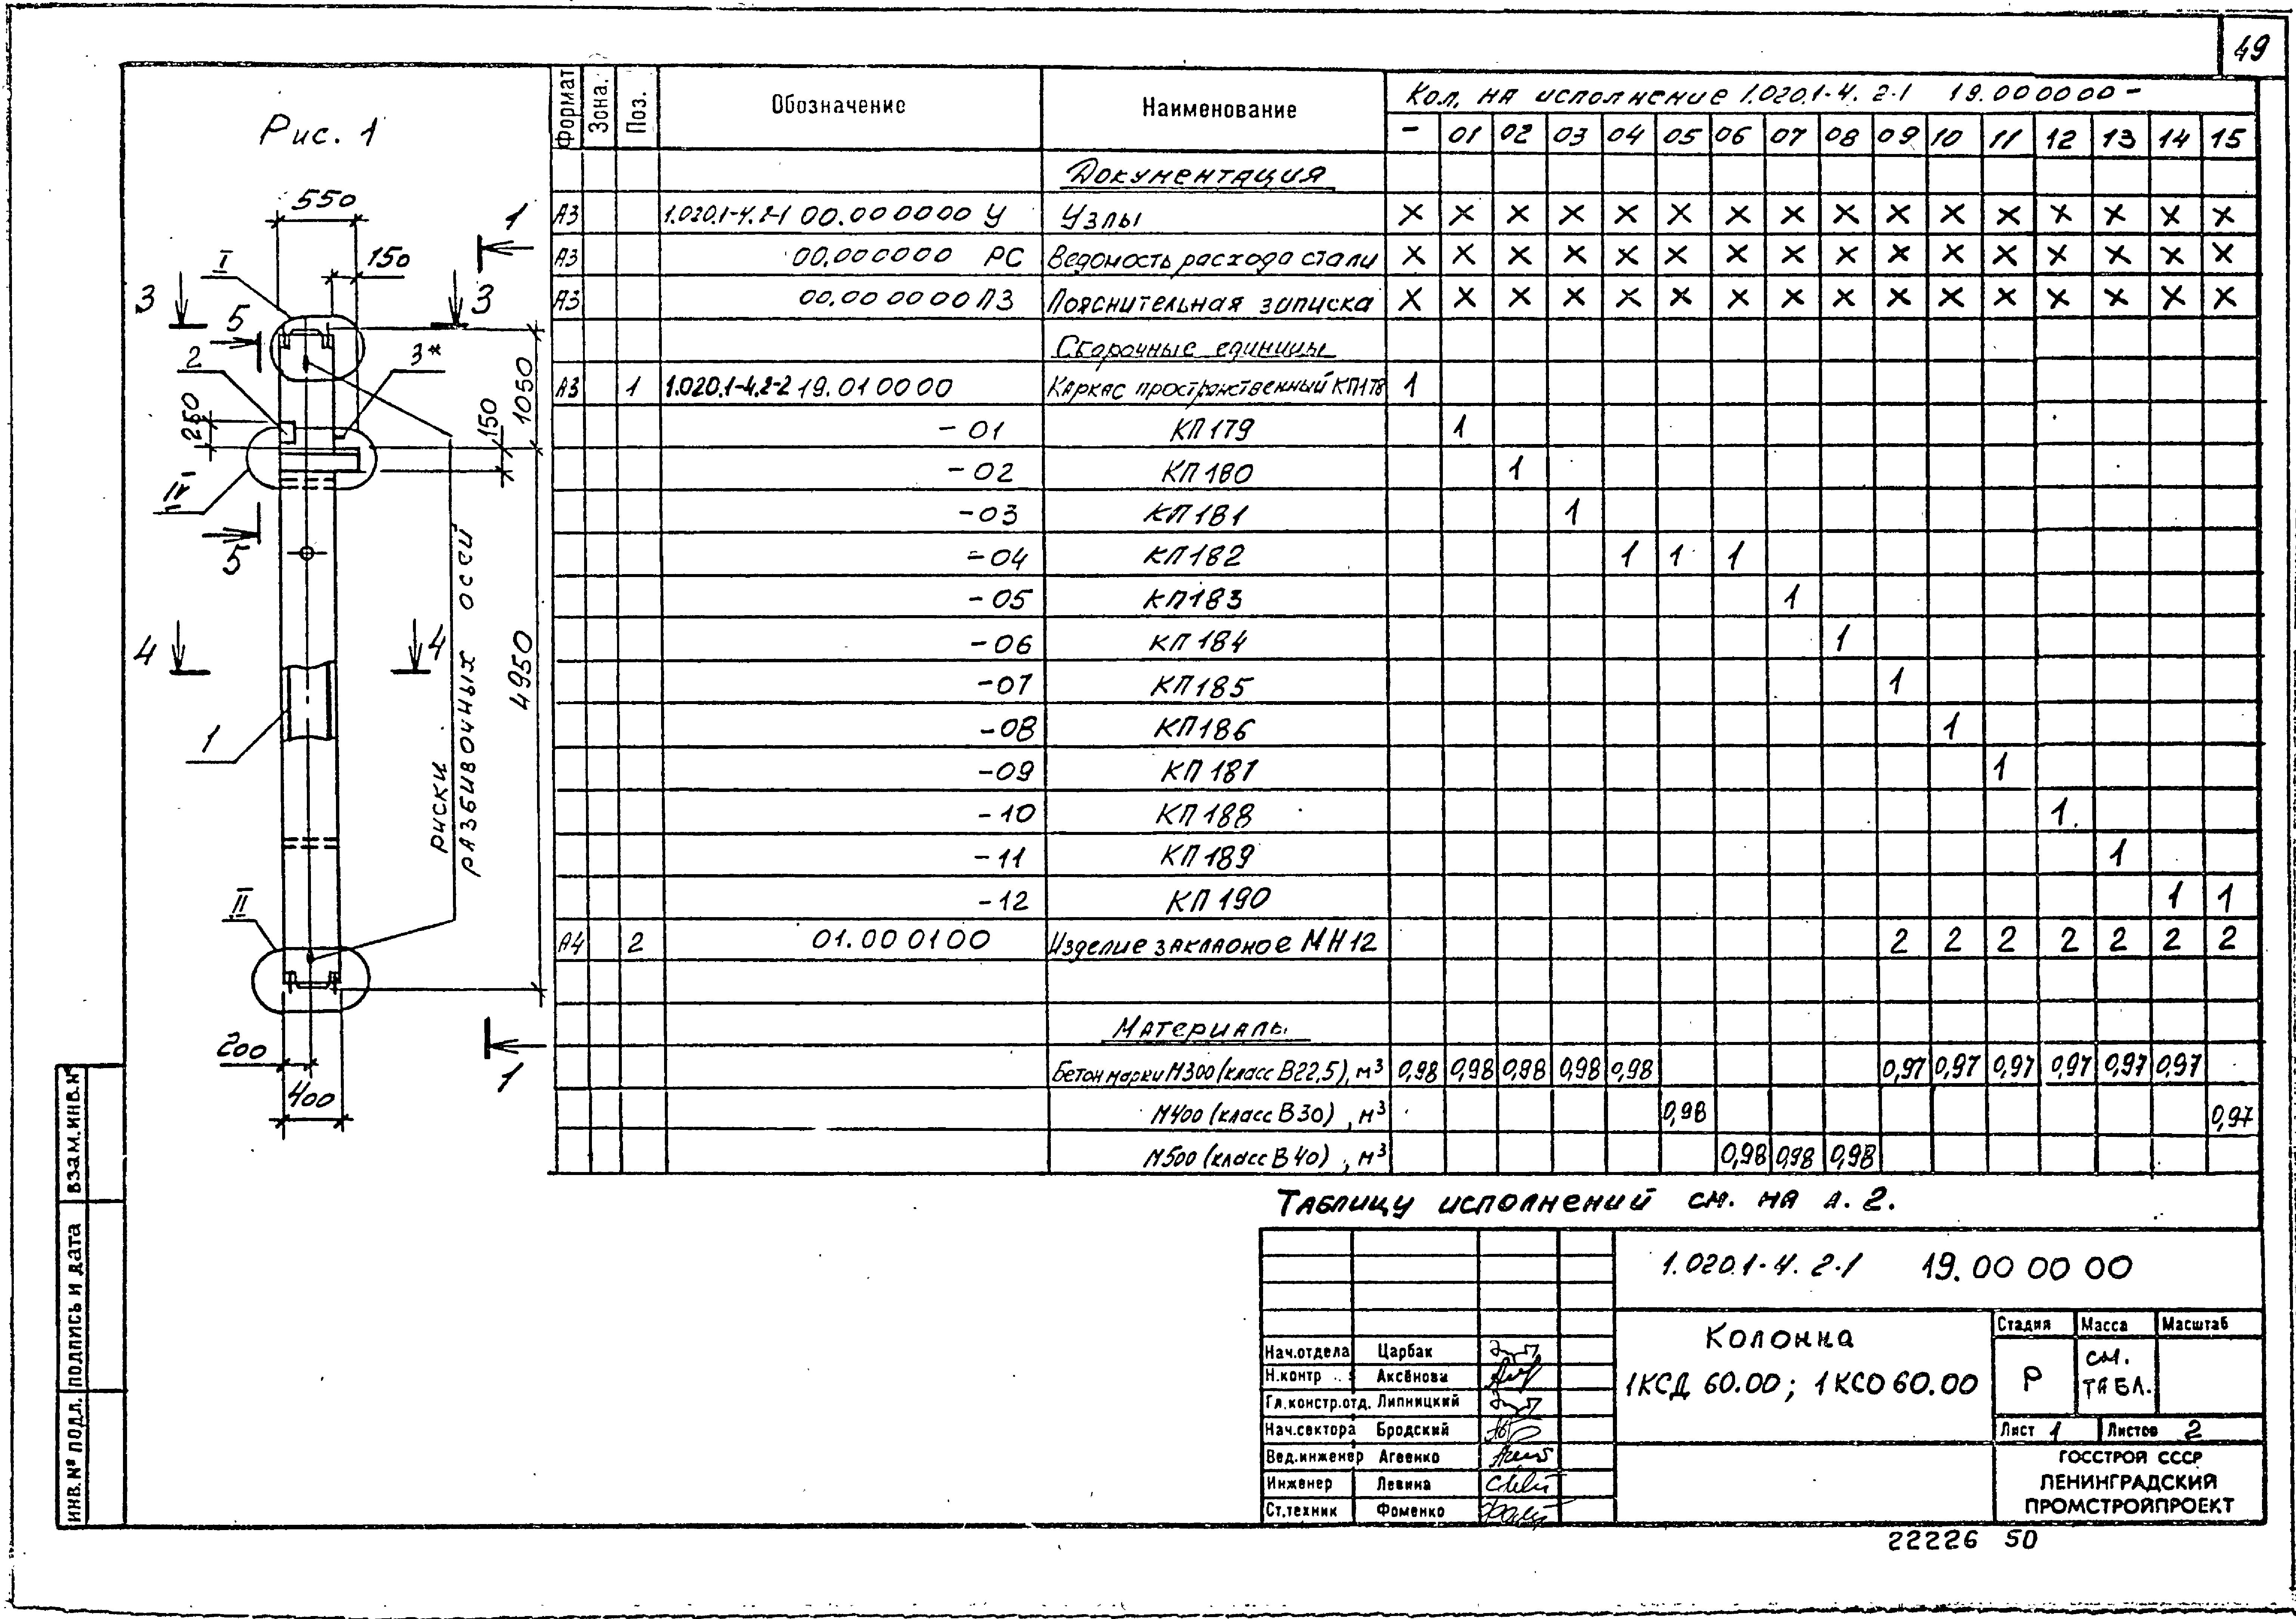 49
Рис. 1
550
150
I
1
3
3
5
2
3*
250
150
1050
IV
5
4
4
4950
1
риски
разбивочных осей
II
200
400
1
Формат Зона. Поз. Обозначение Наименование Кол. на исполнение 1.020.1-4. 2-1 19.000000 -
- 01 02 03 04 05 06 07 08 09 10 11 12 13 14 15
Документация
А3 1.020.1-4.2-1 00.000000 У Узлы X X X X X X X X X X X X X X X X
А3 00.000000 РС Ведомость расхода стали X X X X X X X X X X X X X X X X
А3 00.000000 ПЗ Пояснительная записка X X X X X X X X X X X X X X X X
Сборочные единицы
А3 1 1.020.1-4.2-2 19.010000 Каркас пространственный КП178 1
- 01 КП179 1
- 02 КП180 1
- 03 КП181 1
- 04 КП182 1 1 1
- 05 КП183 1
- 06 КП184 1
- 07 КП185 1
- 08 КП186 1
- 09 КП187 1
- 10 КП188 1
- 11 КП189 1
- 12 КП190 1 1
А4 2 01.000100 Изделие закладное МН12 2 2 2 2 2 2 2
Материалы
Бетон марки М300 (класс В22,5), м³ 0,98 0,98 0,98 0,98 0,98 0,97 0,97 0,97 0,97 0,97 0,97
М400 (класс В30) , м³ 0,98 0,97
М500 (класс В40) , м³ 0,98 0,98 0,98
Таблицу исполнений см. на л. 2.
1.020.1-4. 2-1 19.00 00 00
Колонна
1КСД 60.00; 1КСО 60.00
Стадия Масса Масштаб
Р см. табл.
Лист 1 Листов 2
ГОССТРОЙ СССР
ЛЕНИНГРАДСКИЙ
ПРОМСТРОЙПРОЕКТ
Нач.отдела Царбак
Н.контр Аксёнова
Гл.констр.отд. Липницкий
Нач.сектора Бродский
Вед.инженер Агеенко
Инженер Левина
Ст.техник Фоменко
ИНВ.№ ПОДЛ. ПОДПИСЬ И ДАТА ВЗАМ.ИНВ.№
22226 50